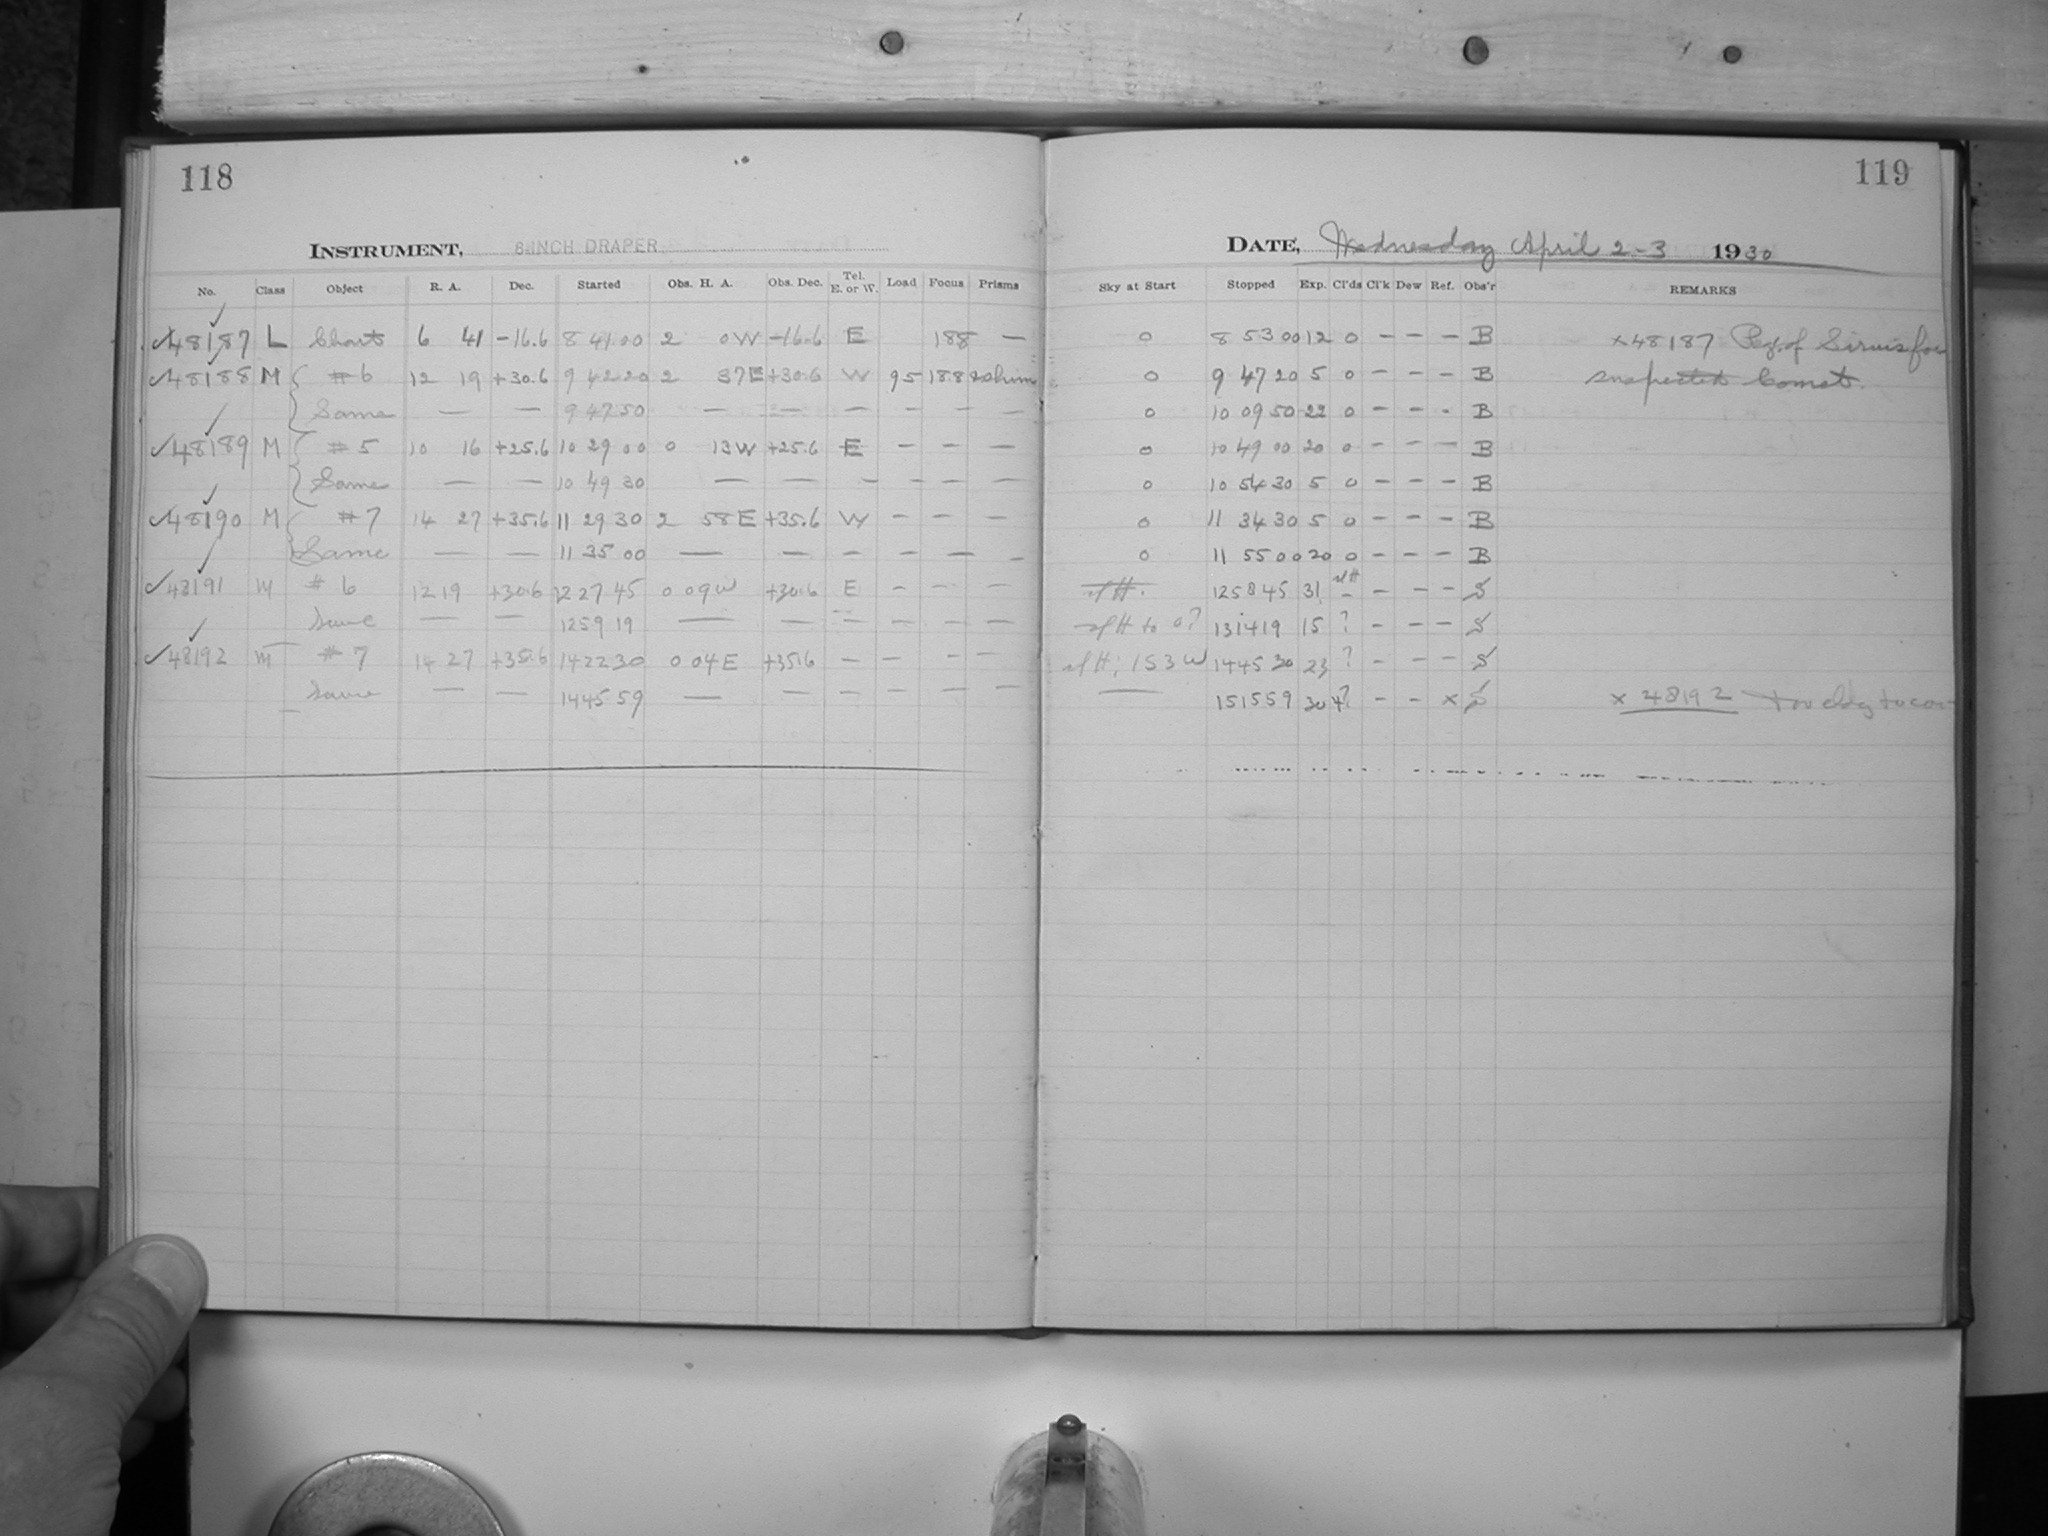 118
INSTRUMENT, 8-INCH DRAPER
No. Class Object R. A. Dec. Started Obs. H. A. Obs. Dec. Tel. E. or W. Load Focus Prisms
48187 L Chart 6 41 -16.6 8 41 00 2 0W -16.6 E 188 —
48188 M #6 12 19 +30.6 9 42 20 2 37E +30.6 W 95 188
Same — — 9 47 50 — — — — — —
48189 M #5 10 16 +25.6 10 29 00 0 13W +25.6 E — — —
Same — — 10 49 30 — — — — — —
48190 M #7 14 27 +35.6 11 29 30 2 58E +35.6 W — — —
Same — — 11 35 00 — — — — — —
48191 M #6 12 19 +30.6 12 27 45 0 09W +30.6 E — — —
Same — — 12 59 19 — — — — — —
48192 M #7 14 27 +35.6 14 22 30 0 04E +35.6 — — — —
Same — — 14 45 59 — — — — — —
119
DATE, Wednesday April 2-3 1930
Sky at Start Stopped Exp. Cl'ds Cl'k Dew Ref. Obs'r REMARKS
0 8 53 00 12 0 — — — B x48187 Reg. of Sirius for
0 9 47 20 5 0 — — — B suspected Comet.
0 10 09 50 22 0 — — - B
0 10 49 00 20 0 — — — B
0 10 54 30 5 0 — — — B
0 11 34 30 5 0 — — — B
0 11 55 00 20 0 — — — B
sl H. 12 58 45 31 sl H — — — S
sl H to 0? 13 14 19 15 ? — — — S
sl H; 153W 14 45 30 23 ? — — — S
— 15 15 59 30 ? — — x S x 48192